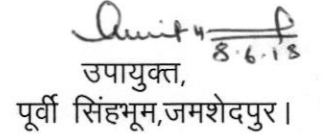 8.6.18
उपायुक्त,
पूर्वी सिंहभूम,जमशेदपुर।